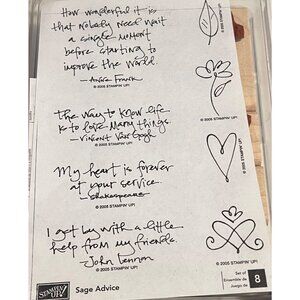 How wonderful it is
that Nobody Need wait
a single moment
before starting to
improve the world.
—Anne Frank
© 2005 STAMPIN' UP!
© 2005 STAMPIN' UP!
© 2005 STAMPIN' UP!
The way to know life
is to love Many things.
—Vincent Van Gogh
© 2005 STAMPIN' UP!
My heart is forever
at your service.
—Shakespeare
© 2005 STAMPIN' UP!
© 2005 STAMPIN' UP!
I get by with a little
help from my friends.
—John Lennon
© 2005 STAMPIN' UP!
© 2005 STAMPIN' UP!
STAMPIN' UP!
Sage Advice
Set of
Ensemble de
Juego de
8